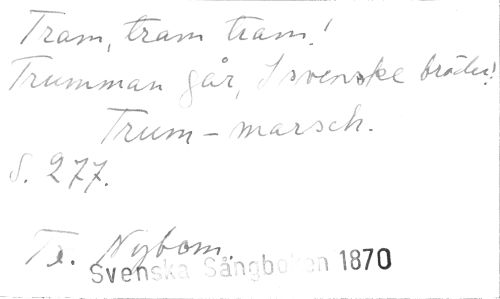 Tram, tram tram!
Trumman går, I svenske bröder!
Trum - marsch.
S. 277.
Tx. Nybom.
Svenska Sångboken 1870